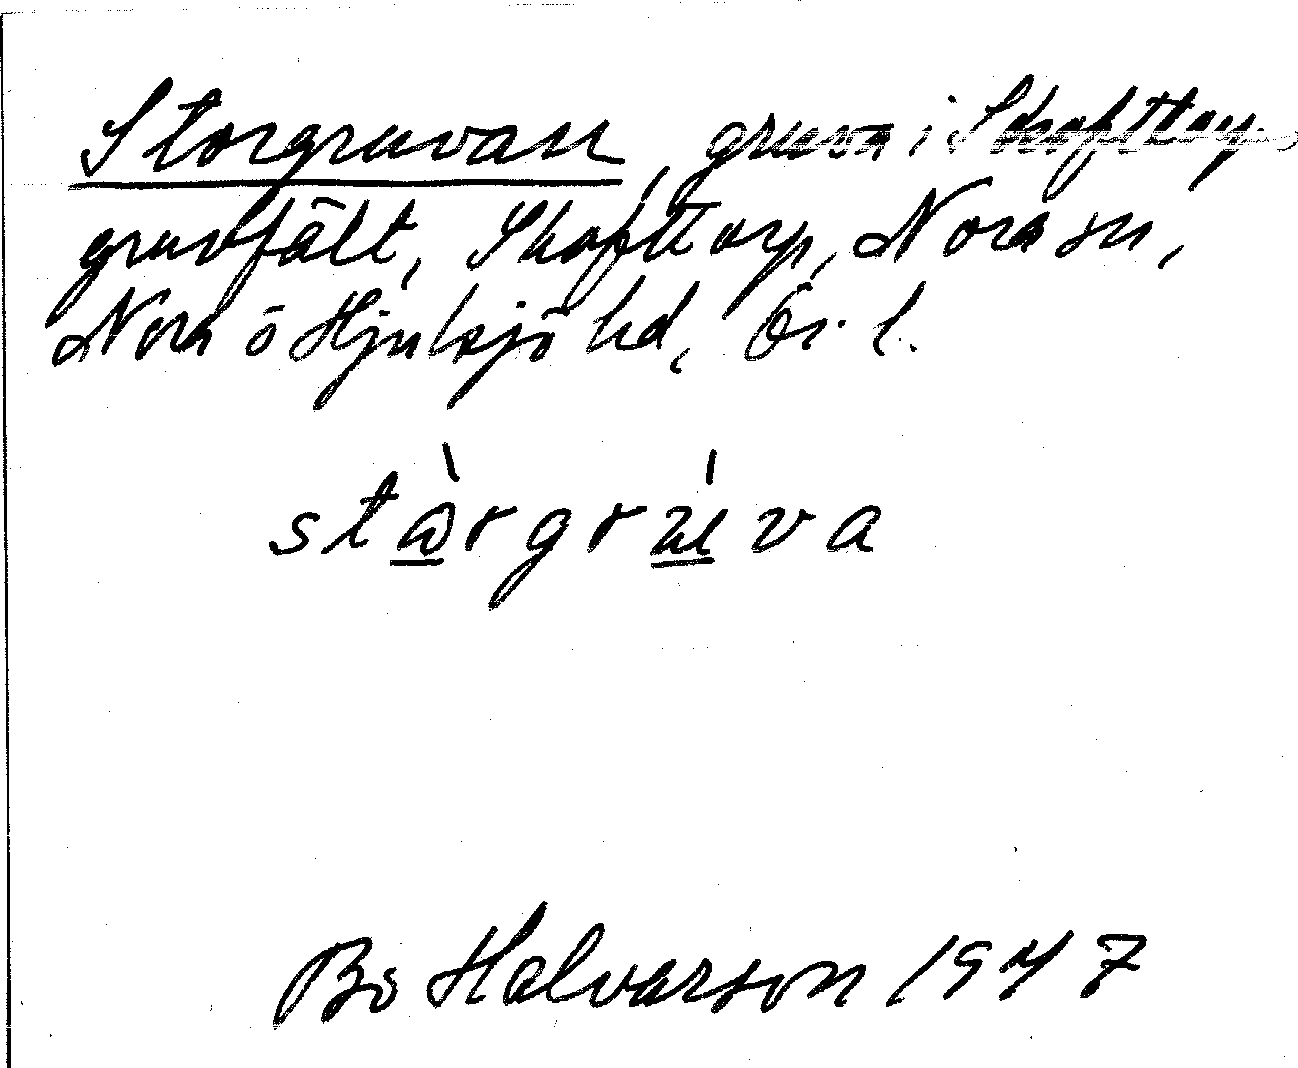 Storgruvan, gruva i Skofttorps
gruvfält, Skofttorp, Nora sn,
Nora o Hjulsjö hd, Ör. l.
stɷ̀rgrúva
Bo Halvarson 1947